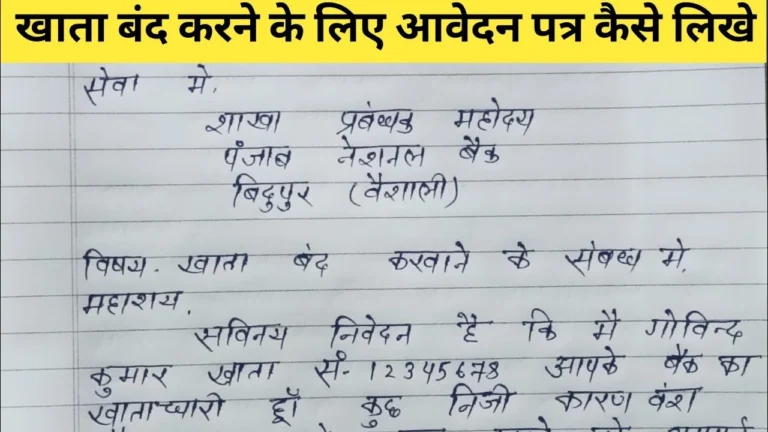 खाता बंद करने के लिए आवेदन पत्र कैसे लिखे
सेवा मे,
शाखा प्रबंधक महोदय
पंजाब नेशनल बैंक
बिदुपुर (वैशाली)
विषय - खाता बंद करवाने के संबंध मे,
महाशय,
सविनय निवेदन है कि मै गोविन्द
कुमार खाता सं- 12345678 आपके बैंक का
खाताधारी हूँ कुछ निजी कारण वंश